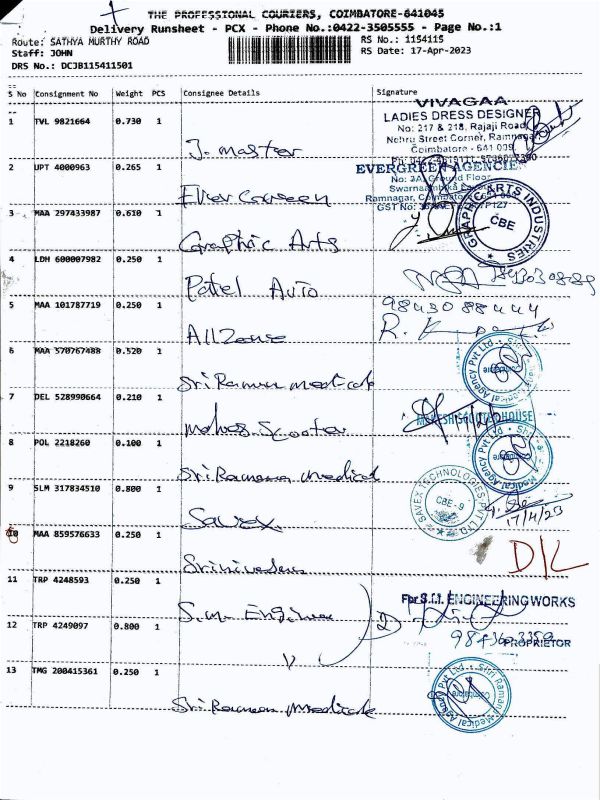 THE PROFESSIONAL COURIERS, COIMBATORE-641045
Delivery Runsheet - PCX - Phone No.:0422-3505555 - Page No.:1
Route: SATHYA MURTHY ROAD
RS No.: 1154115
Staff: JOHN
RS Date: 17-Apr-2023
DRS No.: DCJB115411501
S No Consignment No Weight PCS Consignee Details Signature
1 TVL 9821664 0.730 1
J. master
VIVAGAA
LADIES DRESS DESIGNER
No: 217 & 218, Rajaji Road,
Nehru Street Corner, Ramnagar
Coimbatore - 641 009.
2 UPT 4000963 0.265 1
Ever Green
EVERGREEN AGENCIE
No: 3A, Ground Floor,
Ramnagar,
GST No:
3 MAA 297433987 0.610 1
Graphic Arts
GRAPHIC ARTS INDUSTRIES
CBE
4 LDH 600007982 0.250 1
Patel Auto
5 MAA 101787719 0.250 1
Allzone
98430 88444
6 MAA 570767488 0.520 1
Sri Raman medicals
Shri Ramana Medical Agency Pvt Ltd
Coimbatore
7 DEL 528990664 0.210 1
Scooter
SCOOTER HOUSE
8 POL 2218260 0.100 1
Sri Raman Medical
Shri Ramana Medical Agency Pvt Ltd
Coimbatore
9 SLM 317834510 0.800 1
Savex
SAVEX TECHNOLOGIES PVT LTD
CBE - 9
17/4/23
10 MAA 859576633 0.250 1
Srinivadan
D/L
11 TRP 4248593 0.250 1
S.m. Engineer
For S.I.I. ENGINEERING WORKS
12 TRP 4249097 0.800 1
PROPRIETOR
13 TMG 200415361 0.250 1
Sri Raman Medicals
Shri Ramana Medical Agency Pvt Ltd
Coimbatore